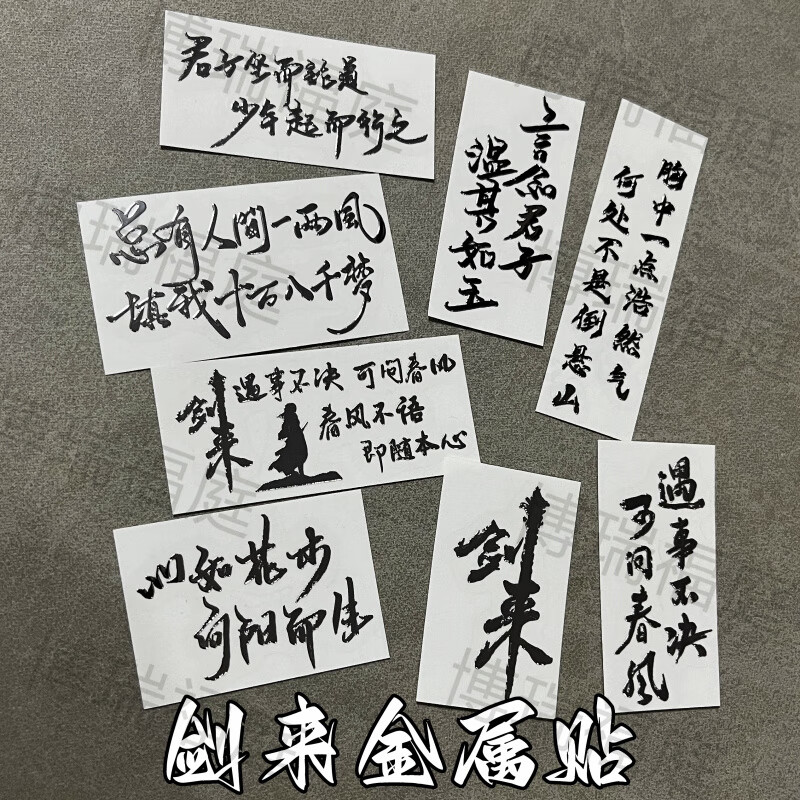 君子坐而论道
少年起而行之
言念君子
温其如玉
胸中一点浩然气
何处不是倒悬山
总有人间一两風
填我十万八千梦
剑来
遇事不决 可问春风
春风不语
即随本心
心如花木
向阳而生
剑来
遇事不决
可问春風
剑来金属贴
博瑞福庭